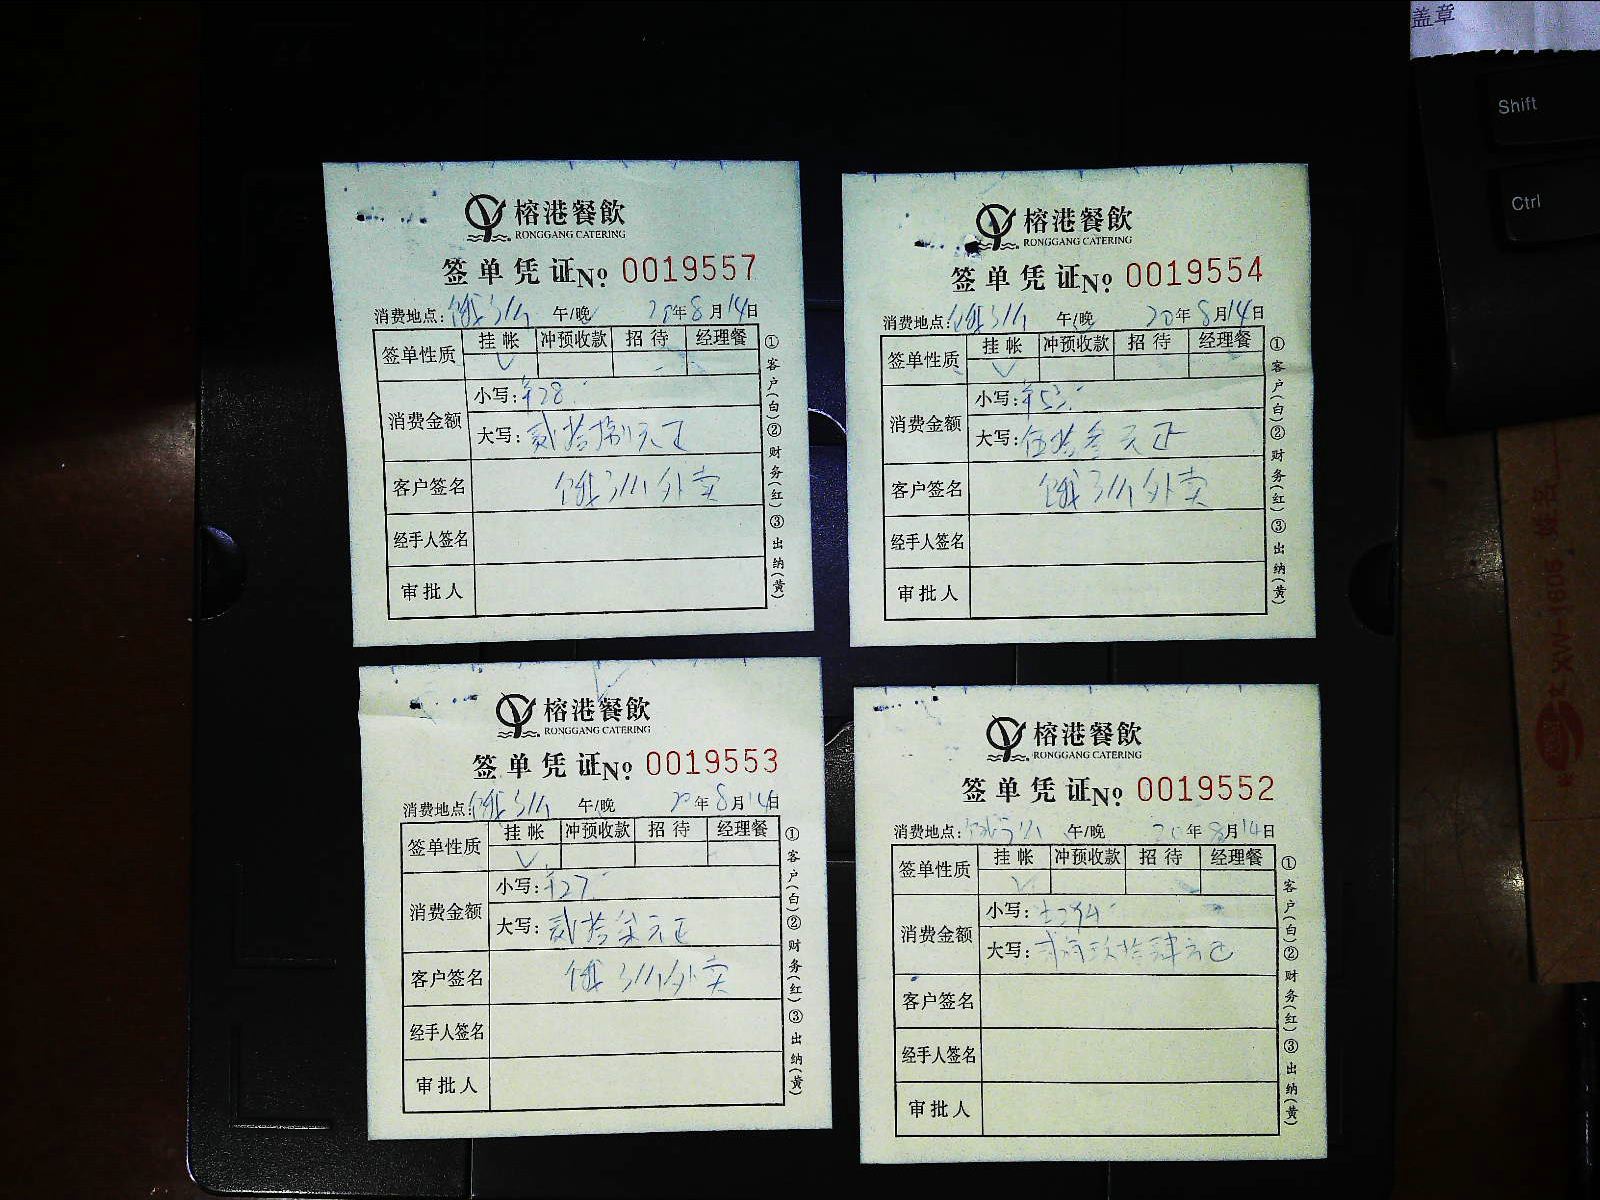 盖章
Shift
Ctrl
榕港餐飲
RONGGANG CATERING
签单凭证No 0019557
消费地点: 饿了么 午/晚 20年8月14日
签单性质 挂帐 冲预收款 招待 经理餐
消费金额 小写: ¥28.
大写: 贰拾捌元正
客户签名 饿了么外卖
经手人签名
审批人
①客户(白)②财务(红)③出纳(黄)
榕港餐飲
RONGGANG CATERING
签单凭证No 0019554
消费地点: 饿了么 午/晚 20年8月14日
签单性质 挂帐 冲预收款 招待 经理餐
消费金额 小写: ¥53.
大写: 伍拾叁元正
客户签名 饿了么外卖
经手人签名
审批人
①客户(白)②财务(红)③出纳(黄)
榕港餐飲
RONGGANG CATERING
签单凭证No 0019553
消费地点: 饿了么 午/晚 20年8月14日
签单性质 挂帐 冲预收款 招待 经理餐
消费金额 小写: ¥27.
大写: 贰拾柒元正
客户签名 饿了么外卖
经手人签名
审批人
①客户(白)②财务(红)③出纳(黄)
榕港餐飲
RONGGANG CATERING
签单凭证No 0019552
消费地点: 饿了么 午/晚 20年8月14日
签单性质 挂帐 冲预收款 招待 经理餐
消费金额 小写: ¥294.
大写: 贰佰玖拾肆元正
客户签名
经手人签名
审批人
①客户(白)②财务(红)③出纳(黄)